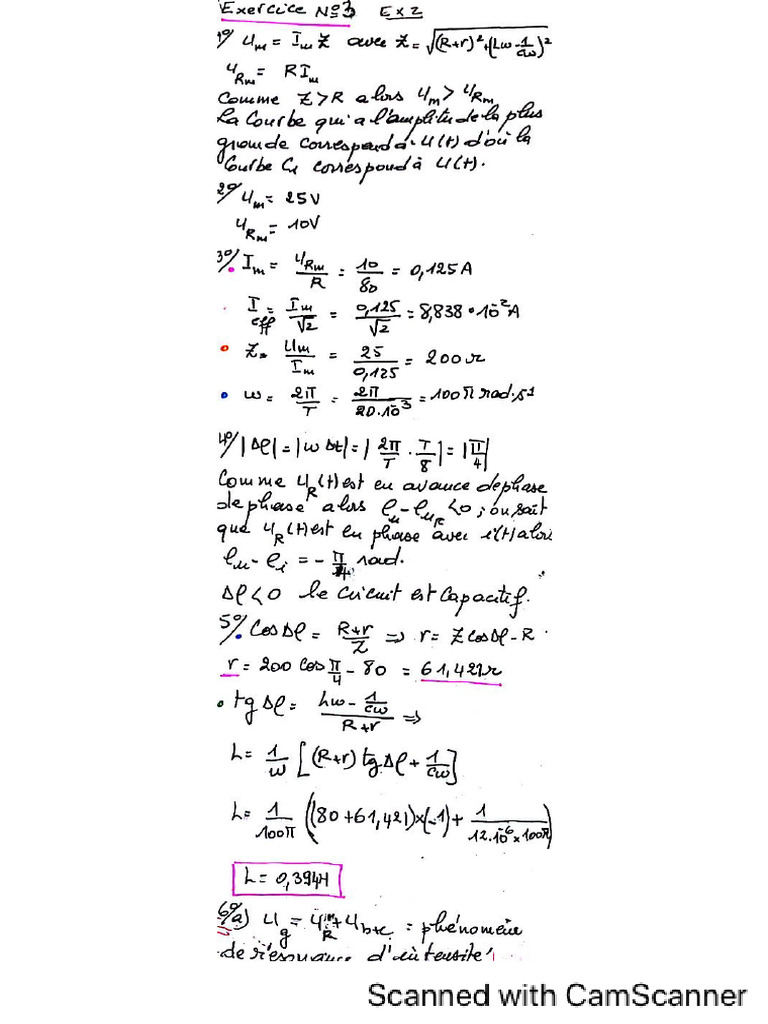 Exercice N°3 Ex 2
1°/ Um = Im Z avec Z = √((R+r)²+(Lω-1/Cω)²)
URm = R Im
Comme Z > R alors Um > URm
La Courbe qui a l'amplitude la plus
grande correspond à U(t) d'où la
Courbe C1 correspond à U(t).
2°/ Um = 25V
URm = 10V
3°/. Im = URm/R = 10/80 = 0,125 A
Ieff = Im/√2 = 0,125/√2 = 8,838 • 10⁻² A
Z = Um/Im = 25/0,125 = 200 Ω
ω = 2π/T = 2π/20.10⁻³ = 100π rad.s⁻¹
4°/ |Δφ| = |ω Δt| = |2π/T . T/8| = |π/4|
Comme UR(t) est en avance de phase
de phase alors φu - φuR < 0 ; on sait
que UR(t) est en phase avec i(t) alors
φu - φi = - π/4 rad.
Δφ < 0 le circuit est Capacitif.
5°/. Cos Δφ = R+r/Z => r = Z cos Δφ - R
r = 200 cos π/4 - 80 = 61,421 Ω
• tg Δφ = (Lω - 1/Cω)/(R+r) =>
L = 1/ω [(R+r) tg Δφ + 1/Cω]
L = 1/100π ((80 + 61,421)×(-1) + 1/(12.10⁻⁶ × 100π))
L = 0,394H
6°/a) Ug = Um R + Ub+c = phénomène
de résonance d'intensité
Scanned with CamScanner